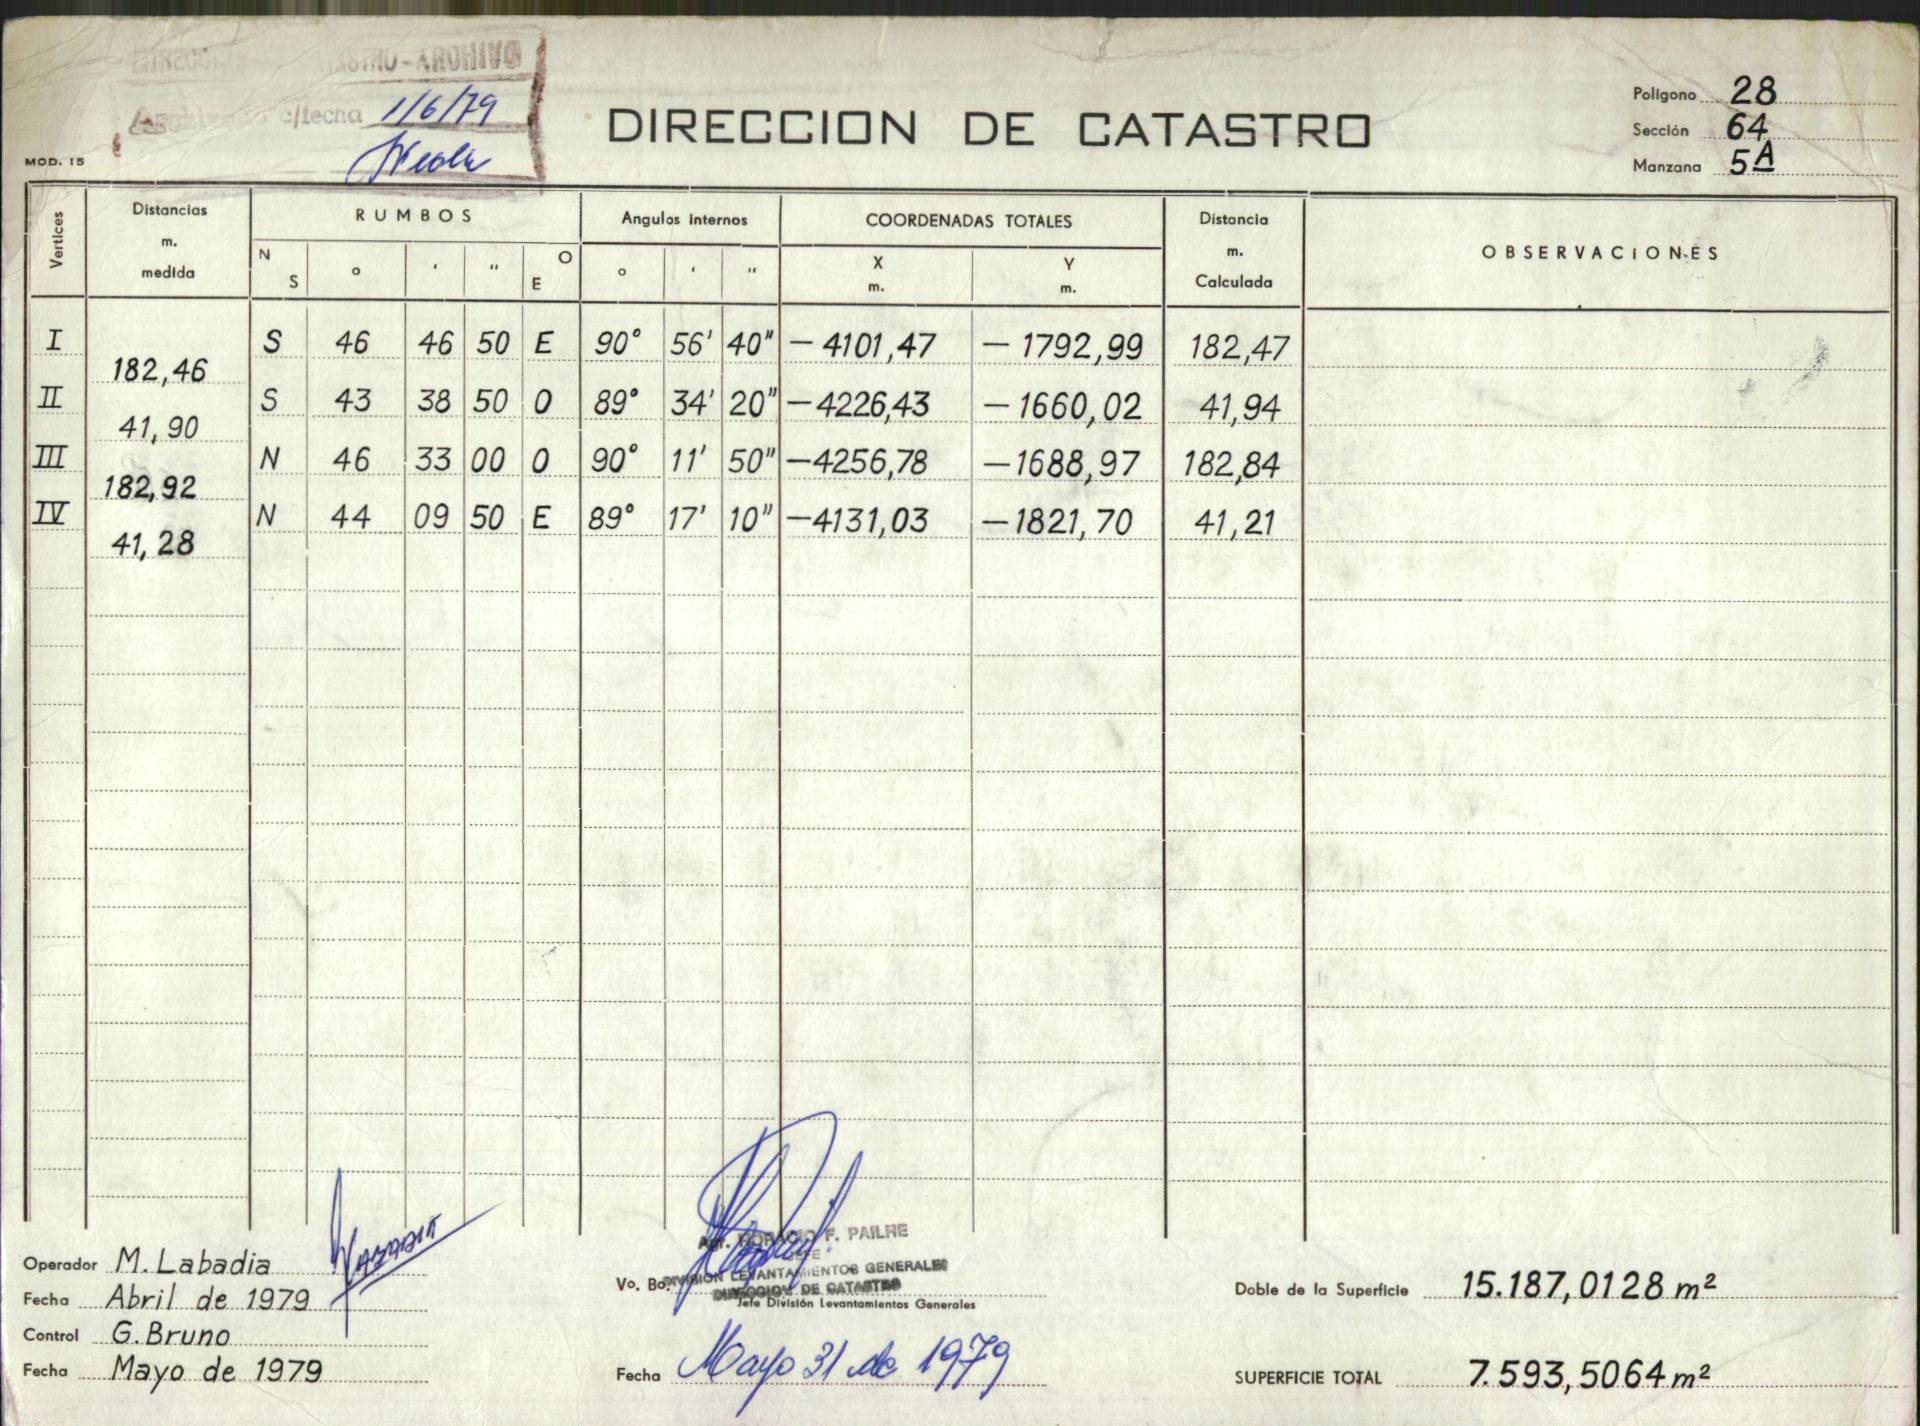 ARCHIVO
c/fecha 1/6/79
DIRECCION DE CATASTRO
Polígono 28
Sección 64
Manzana 5A
MOD. 15
Vertices
Distancias
m.
medida
RUMBOS
Angulos internos
COORDENADAS TOTALES
Distancia
m.
Calculada
OBSERVACIONES
N S ° ' " O E ° ' " X m. Y m.
I S 46 46 50 E 90° 56' 40" -4101,47 -1792,99 182,47
182,46
II S 43 38 50 O 89° 34' 20" -4226,43 -1660,02 41,94
41,90
III N 46 33 00 O 90° 11' 50" -4256,78 -1688,97 182,84
182,92
IV N 44 09 50 E 89° 17' 10" -4131,03 -1821,70 41,21
41,28
Operador M. Labadia
Fecha Abril de 1979
Control G. Bruno
Fecha Mayo de 1979
Agr. HORACIO F. PAILRE
JEFE
Vo. Bo. DIVISION LEVANTAMIENTOS GENERALES
DIRECCION DE CATASTRO
Jefe División Levantamientos Generales
Fecha Mayo 31 de 1979
Doble de la Superficie 15.187,0128 m²
SUPERFICIE TOTAL 7.593,5064 m²